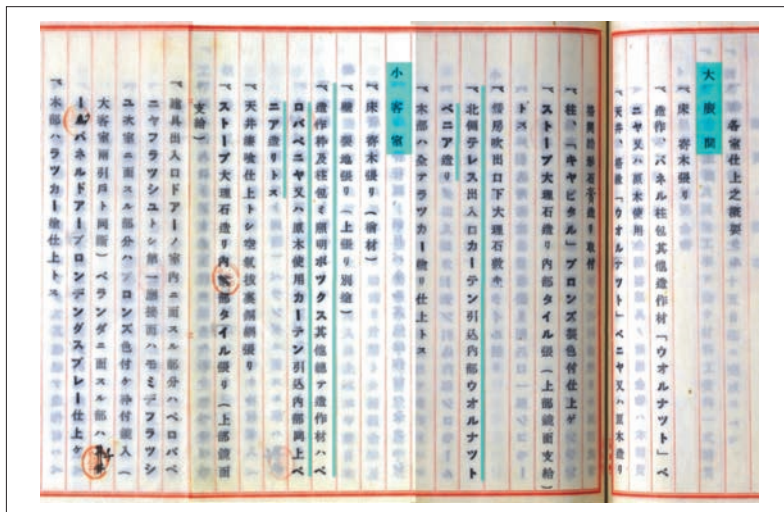 各室仕上之概要
大広間
一、床、寄木張リ
一、造作、パネル柱包其他造作材「ウオルナツト」ベ
ニヤ又ハ原木使用
一、天井、格縁「ウオルナツト」ベニヤ又ハ原木造リ
一、柱、「キヤピタル」ブロンズ製色付仕上ゲ
一、ストーブ大理石造リ内部タイル張(上部鏡面支給)
トス
一、煖房吹出口下大理石敷キ
一、北側テレス出入口カーテン引込内部ウオルナツト
ベニア造リ
一、木部ハ全テラツカー塗リ仕上トス
小客室
一、床、寄木張リ(檜材)
一、壁、張地張リ(上張リ別途)
一、造作枠及柱包ミ照明ボツクス其他総テ造作材ハペ
ロバベニヤ又ハ原木使用カーテン引込内部同上ベ
ニア造リトス
一、天井漆喰仕上トシ空気抜裏銅網張リ
一、ストーブ大理石造リ内部タイル張リ(上部鏡面
支給)
一、建具出入口ドアーノ室内ニ面スル部分ハペロバベ
ニヤフラツシユトシ第一應接面ハモミデフラツシ
ユ次室ニ面スル部分ハブロンズ色付ケ枠付鏡入(
大客室両引戸ト同断)ベランダニ面スル部ハ
ールパネルドアーブロンデンダスプレー仕上ケ
一、木部ハラツカー塗仕上トス